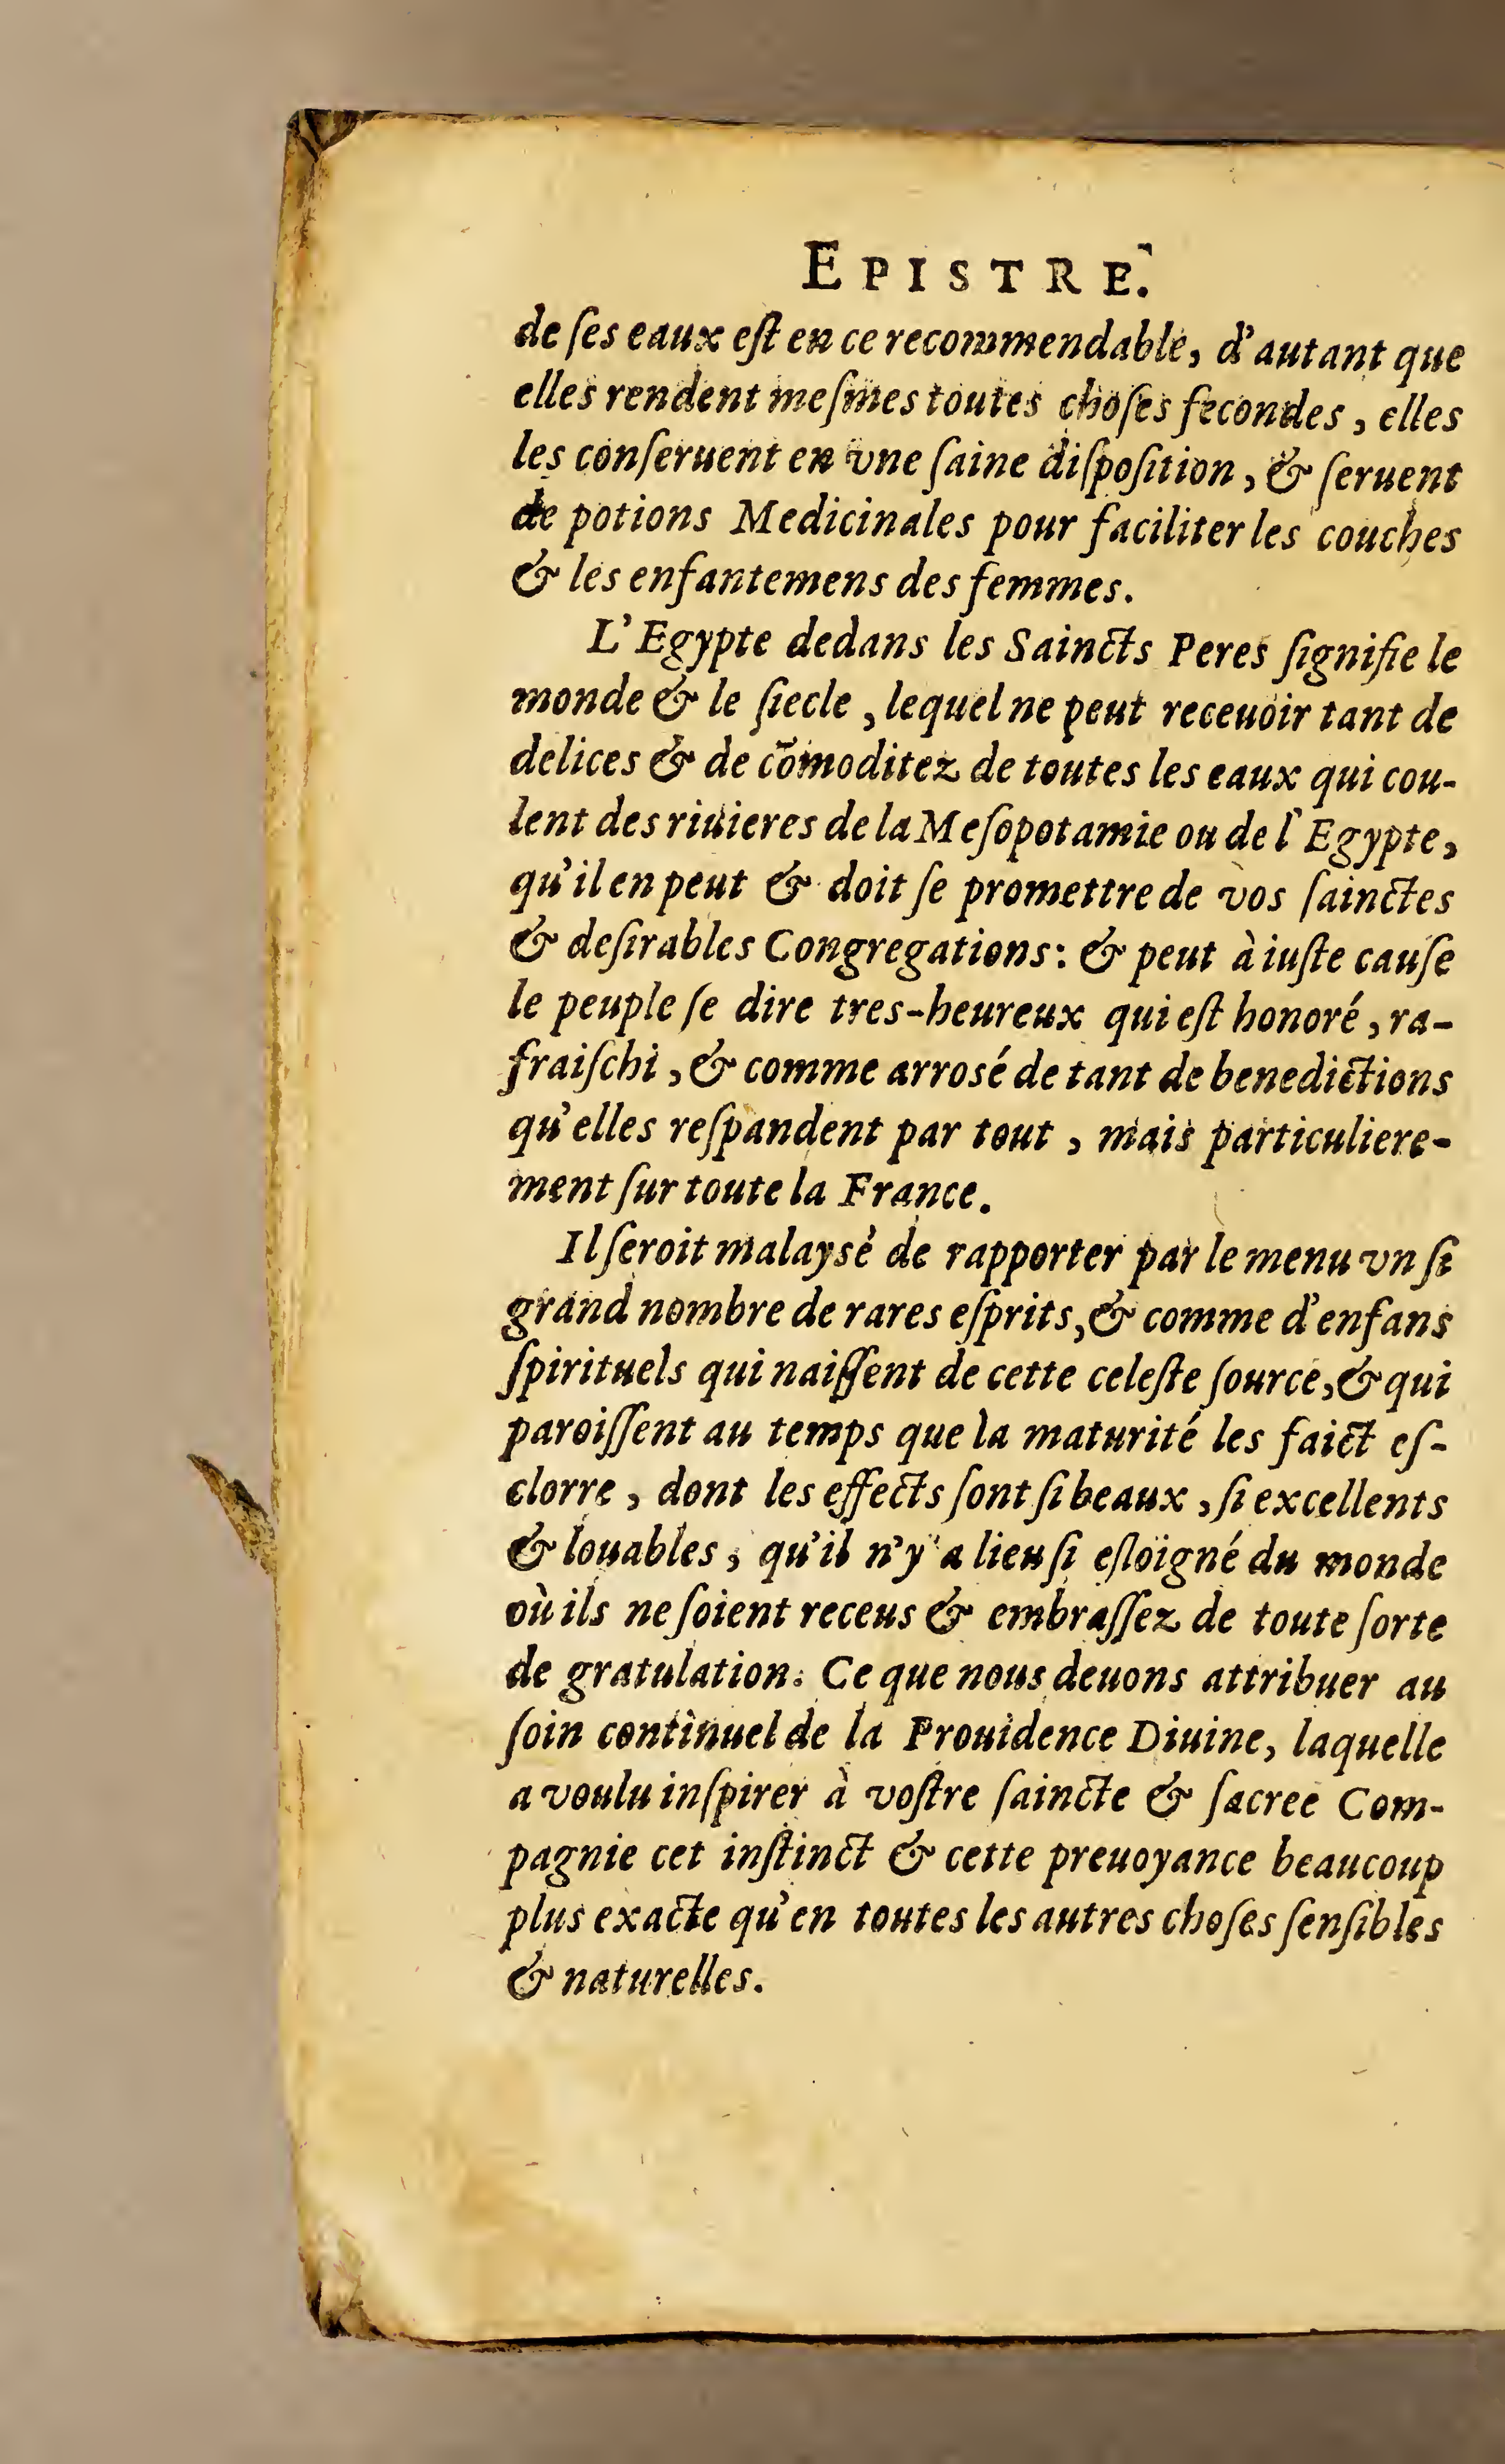 EPISTRE.
de ſes eaux eſt en ce recommendable, d'autant que
elles rendent meſmes toutes choſes fecondes, elles
les conſeruent en vne ſaine diſpoſition, & ſeruent
de potions Medicinales pour faciliter les couches
& les enfantemens des femmes.
L'Egypte dedans les Saincts Peres ſignifie le
monde & le ſiecle, lequel ne peut receuoir tant de
delices & de cõmoditez de toutes les eaux qui cou-
lent des riuieres de la Meſopotamie ou de l'Egypte,
qu'il en peut & doit ſe promettre de vos ſainctes
& deſirables Congregations: & peut à iuſte cauſe
le peuple ſe dire tres-heureux qui eſt honoré, ra-
fraiſchi, & comme arrosé de tant de benedictions
qu'elles reſpandent par tout, mais particuliere-
ment ſur toute la France.
Il ſeroit malaysé de rapporter par le menu vn ſi
grand nombre de rares eſprits, & comme d'enfans
ſpirituels qui naiſſent de cette celeſte ſource, & qui
paroiſſent au temps que la maturité les faict eſ-
clorre, dont les effects ſont ſi beaux, ſi excellents
& louables, qu'il n'y a lieu ſi eſloigné du monde
où ils ne ſoient receus & embraſſez de toute ſorte
de gratulation. Ce que nous deuons attribuer au
ſoin continuel de la Prouidence Diuine, laquelle
a voulu inſpirer à voſtre ſaincte & ſacree Com-
pagnie cet inſtinct & cette preuoyance beaucoup
plus exacte qu'en toutes les autres choſes ſenſibles
& naturelles.